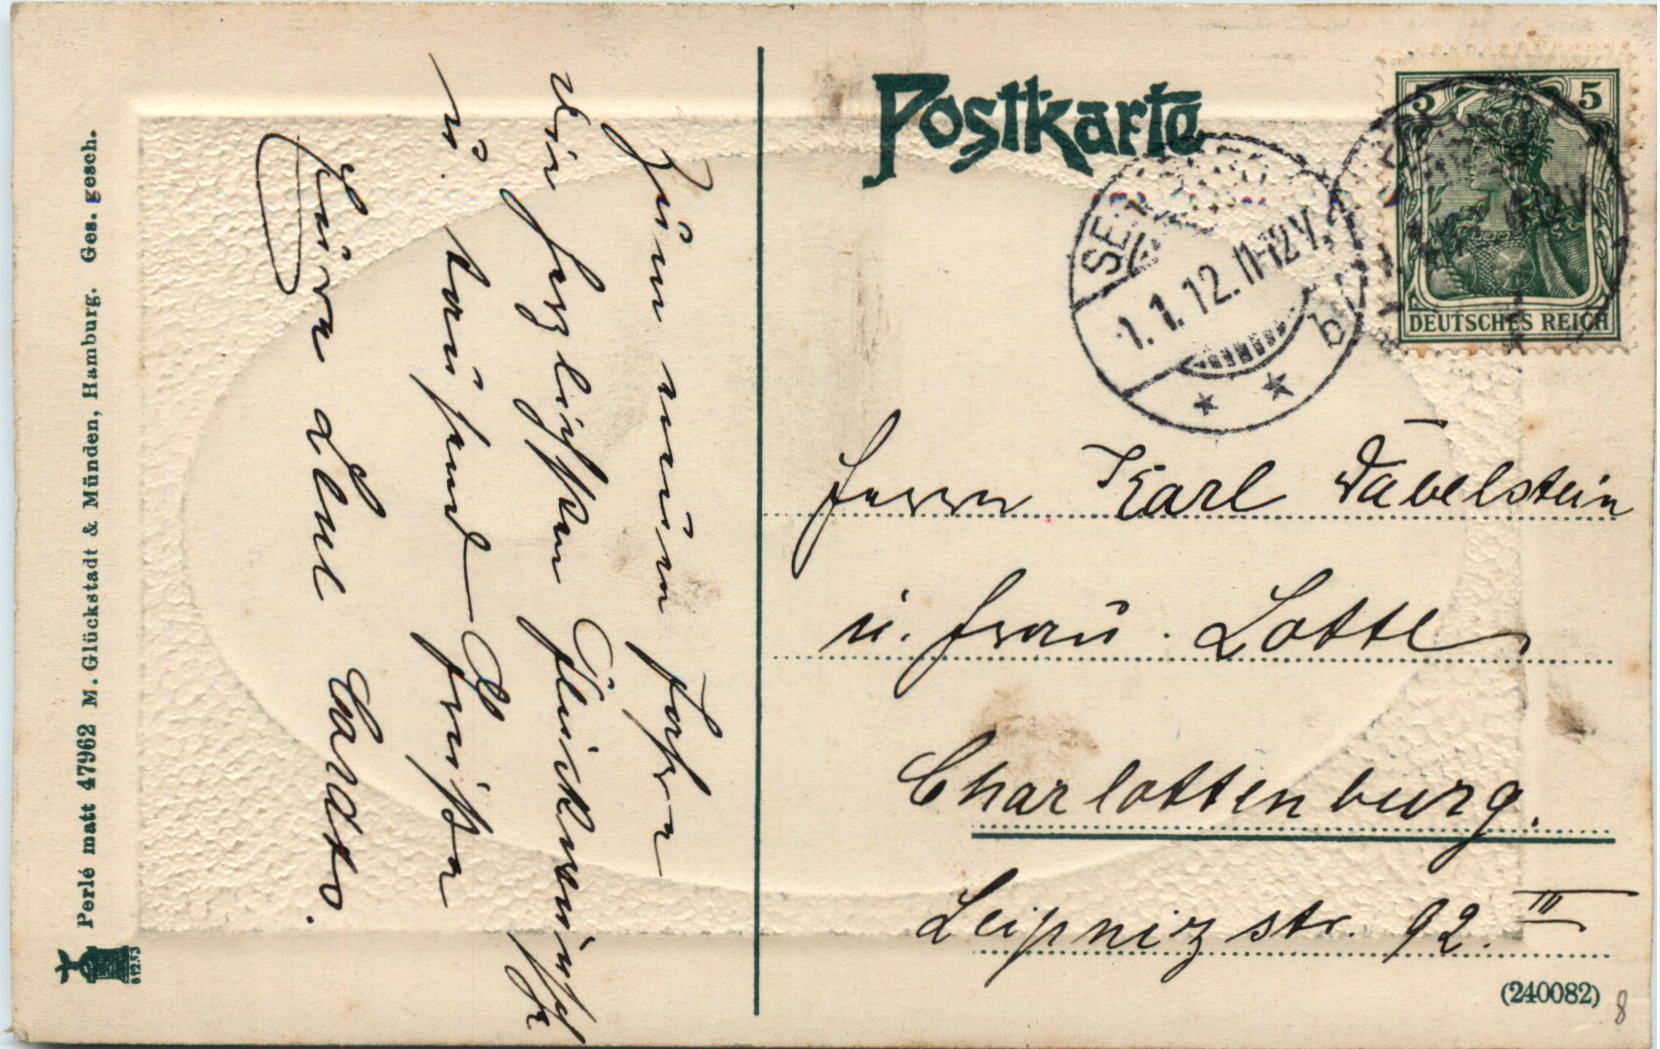 Postkarte
5 5
DEUTSCHES REICH
1.1.12.11-12V.
b
* *
Herrn Karl Däbelstein
u. Frau. Lotte
Charlottenburg.
Leipnizstr. 92. III
(240082)
8
Zum neuen Jahre
die herzlichsten Glückwünsche
u. tausend Grüße
Eure
Perlé matt 47962 M. Glückstadt & Münden, Hamburg. Ges. gesch.